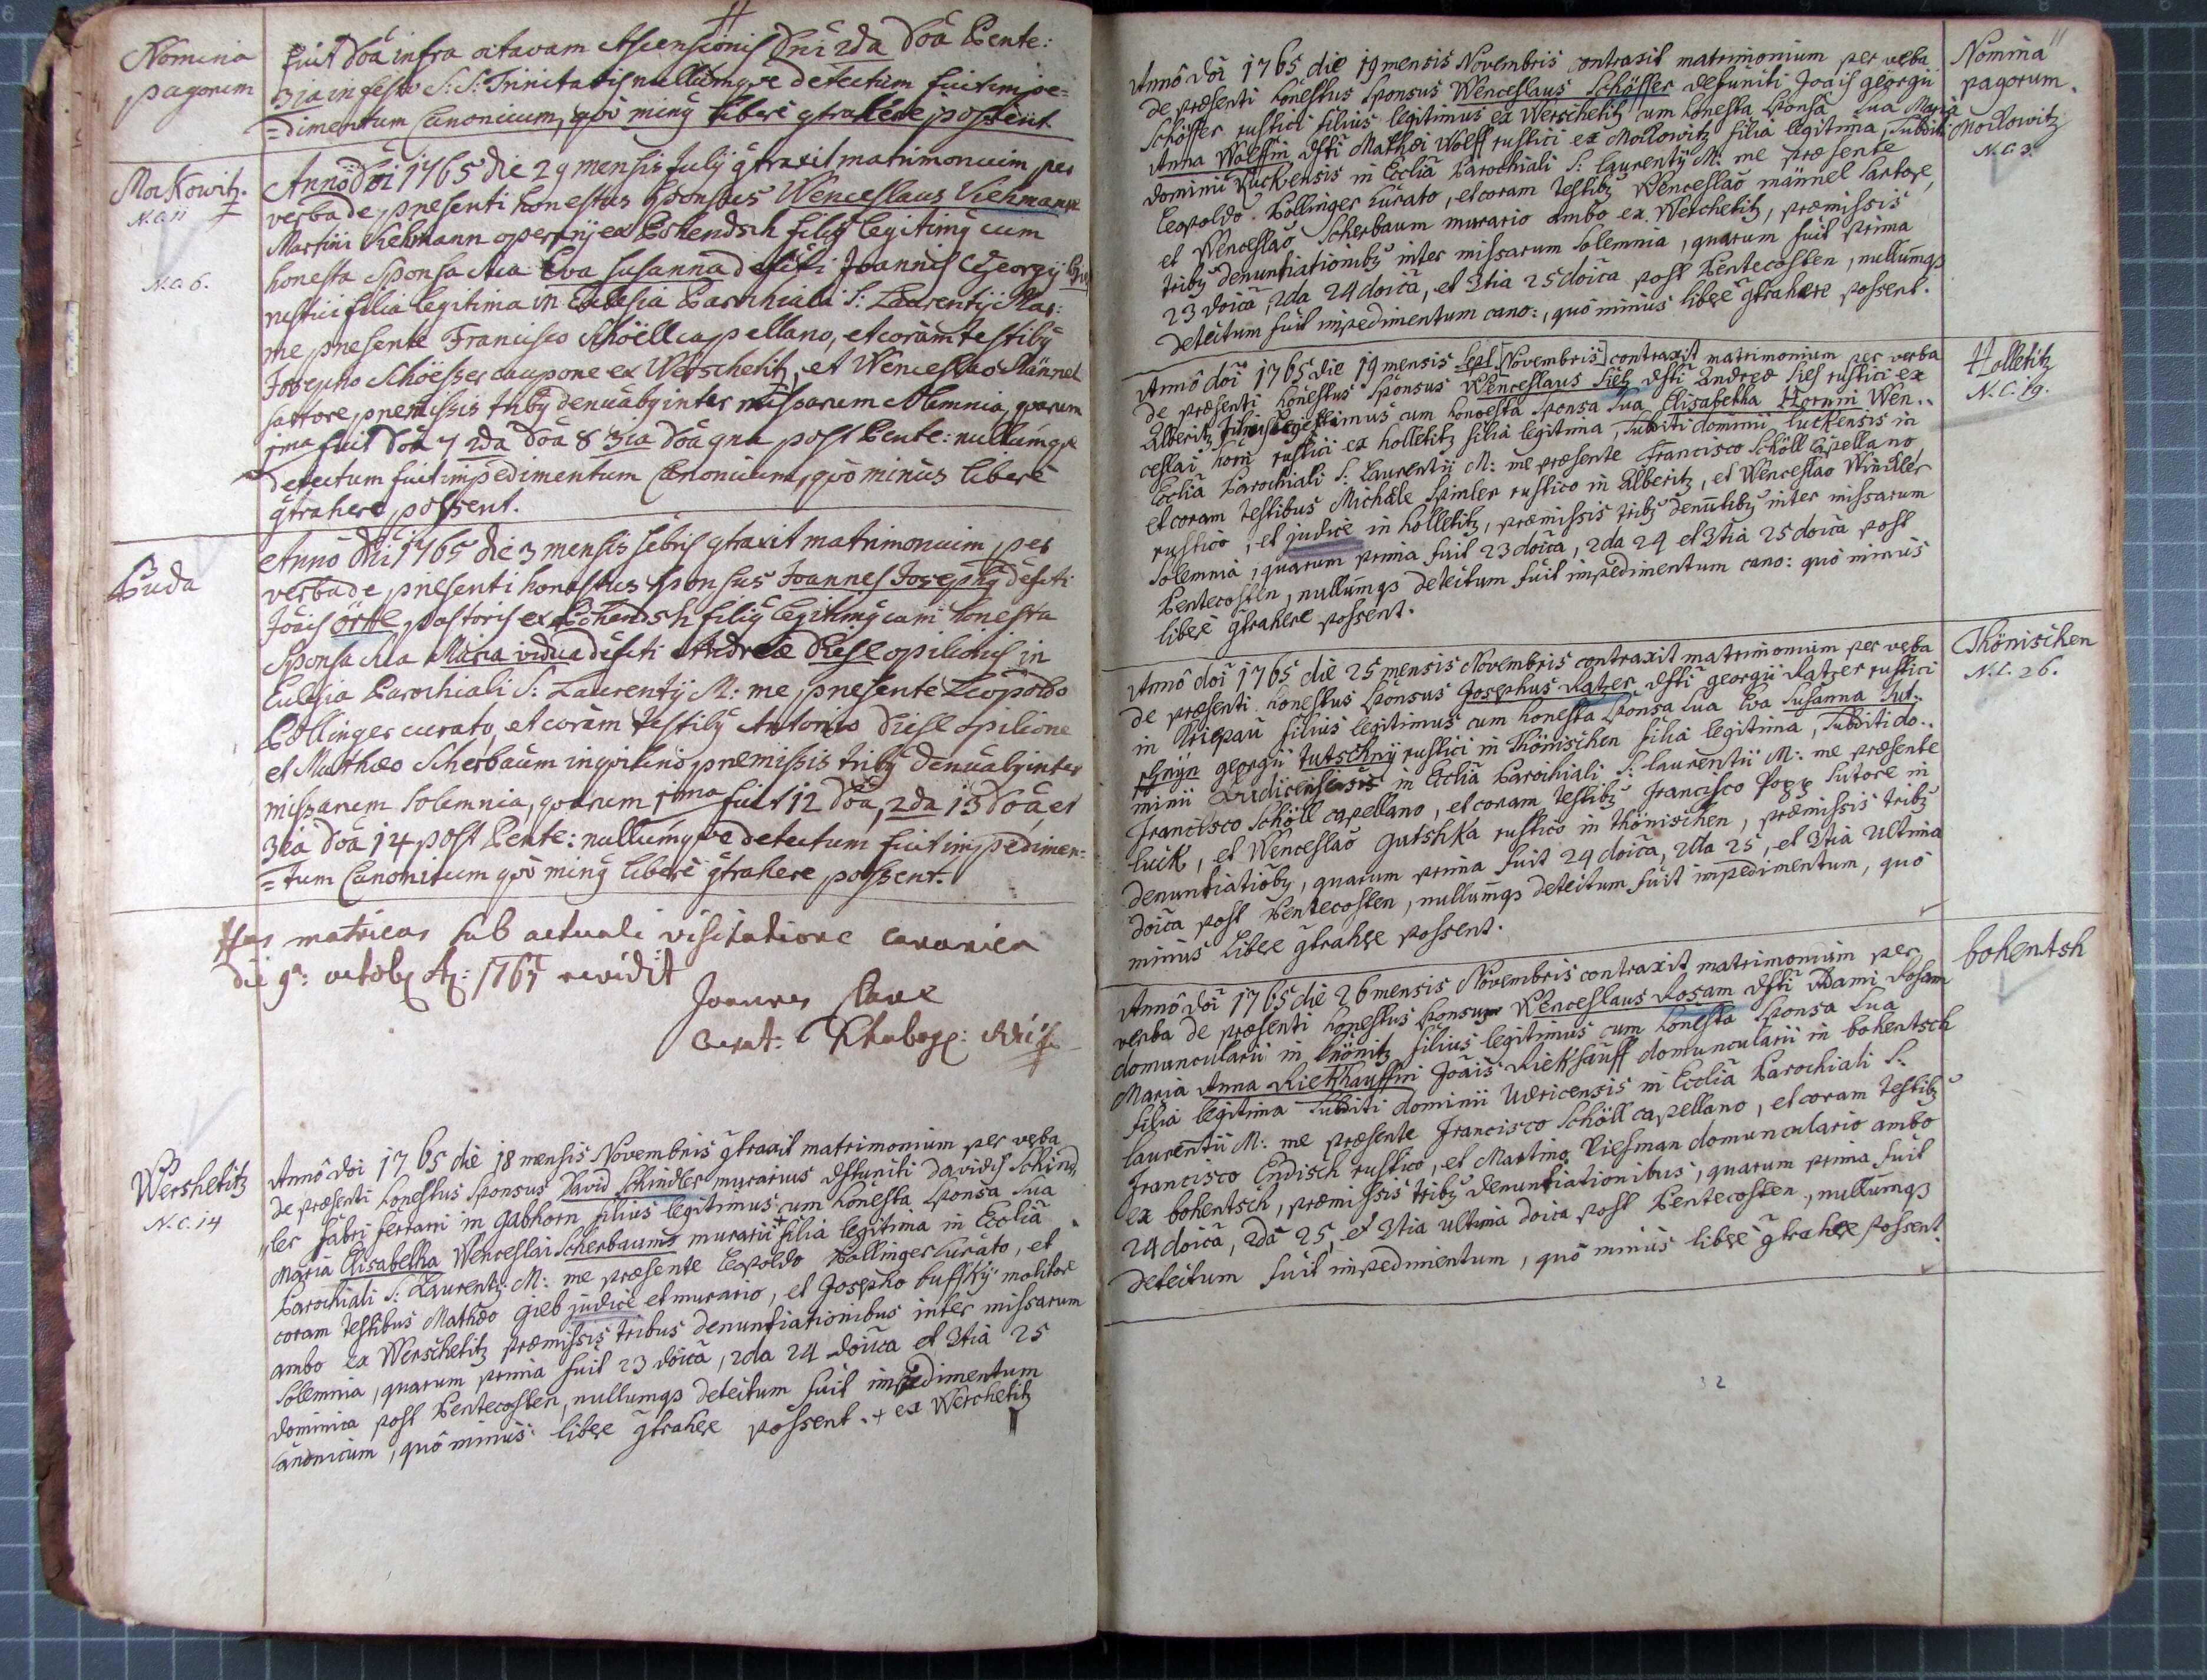 Nomina
pagorum
fuit Doã infra octavam Ascensionis Dni 2da Doã Pente:
3ia in festo S: S: Trinitatis nullumque detectum fuit impe=
=dimentum Canonicum, quò ming liberè gtrahere possent
Mockowitz.
N.C. 11
N.C. 6.
Annô Dni 1765 die 29 mensis July gtraxit matrimonium per
verba de præsenti honestus Sponsus Wenceslaus Viehmann
Martini Viehmann operarij ex Pohendsch filig legitimg cum
honesta Sponsa sua Eva Susanna defuti Joannis Georgij
rustici filia legitima in Ecclesia Parochiali S: Laurentij Mar:
me præsente Francisco Schöell capellano, et coràm testibg
Josepho Schöeffer caupone ex Werschetitz, et Wenceslao Männel
sartore præmissis tribg denuãbg inter missarum solemnia, quarum
1ma fuit Doã 7 2da Doã 8 3ia Doã 9na post Pente: nullumque
detectum fuit impedimentum Canonicum, quò minùs liberè
gtrahere possent.
Puda
Annô Dni 1765 die 3 mensis 7bris gtraxit matrimonium per
verba de præsenti honestus Sponsus Joannes Josephg defuti
Joãis örtl pastoris ex Pohendsh filig legitimg cum honesta
Sponsa sua Maria vidua defuti Andreæ Diesl opilionis in
Ecclesia Parochiali S: Laurentij M: me præsente Leopoldo
Pollinger curato, et coràm testibg Antonio Diesl opilione
et Mathæo Scherbaum inquilino præmissis tribg denuãbg inter
missarum solemnia, quarum 1ma fuit 12 Doã, 2da 13 Doã, et
3ia Doã 14 post Pente: nullumque detectum fuit impedimen=
=tum Canonicum quò ming liberè gtrahere possent.
Has matricas sub actuali visitatione canonica
die 9a: octobr A: 1765 revidit
Joannes
Wershetitz
N.C. 14
Annô doi 1765 die 18 mensis Novembris gtraxit matrimonium per verba
de præsenti honestus Sponsus David Schindler murarius defuncti Davidis Schind,
„ler fabri ferrarii in Gabhorn filius legitimus cum honesta Sponsa sua
Maria Elisabetha Wenceslai Scherbaums murarii + filia legitima in Ecclia
Parochiali S: Laurentj: M: me præsente Leopoldo Pollinger Curato, et
coram testibus Mathæo Gieb judice et murario, et Josepho buffky molitore
ambo ex Werschetitz præmissis tribus denuntiationibus inter missarum
solemnia, quarum prima fuit 23 doica, 2da 24 doica et 3tia 25
dominica post Pentecosten, nullumqs detectum fuit impedimentum
canonicum, quô minus liberè gtrahere possent. + ex Werchetitz
11
Nomina
pagorum.
Mockowitz
N.C. 3.
Annô doi 1765 die 19 mensis Novembris contraxit matrimonium per verba
de præsenti honestus Sponsus Wenceslaus Schöffer defuncti Joãis georgii
Schöffer rustici filius legitimus ex Werschetitz cum honesta Sponsa sua Maria
Anna Wolffin dfti Mathæi Wolff rustici ex Mockowitz filia legitima, subditi
dominii Luckensis in Ecclia Parochiali S: Laurentij M: me præsente
Leopoldo Pollinger Curato, et coram testibg Wenceslao männel Sartore,
et Wenceslao Scherbaum murario ambo ex Werchetitz, præmissis
tribg denuntiationibg inter missarum solemnia, quarum fuit prima
23 doica, 2da 24 doica, et 3tia 25 doica post Pentecosten, nullumqs
detectum fuit impedimentum cano:, quò minus liberè gtrahere possent.
Holletitz
N.C. 19.
Annô doi 1765 die 19 mensis sept [Novembris] contraxit matrimonium per verba
de præsenti honestus Sponsus Wenceslaus Sieß dfti Andreæ Sieß rustici ex
Alberitz filius legitimus cum honesta Sponsa sua Elisabetha Hornin Wen„
ceslai horn rustici ex holletitz filia legitima, subditi dominii luckensis in
Ecclia Parochiali S: Laurentii M: me præsente Francisco Schöll Capellano
et coram testibus Michaele Spinler rustico in Alberitz, et Wenceslao Winckler
rustico, et judice in holletitz, præmissis tribg denuntibg inter missarum
solemnia, quarum prima fuit 23 doica, 2da 24 et 3tia 25 doica post
Pentecosten, nullumqs detectum fuit impedimentum cano: quô minus
liberè gtrahere possent.
Thönischen
N.C. 26.
Annô doi 1765 die 25 mensis Novembris contraxit matrimonium per verba
de præsenti honestus Sponsus Josephus Ratzer dfti georgii Ratzer rustici
in filius legitimus cum honesta Sponsa sua Eva Susanna Tut„
schnyn georgii tutschny rustici in Thönischen filia legitima, subditi do„
minii Udricensis in Ecclia Parochiali S: Laurentii M: me præsente
Francisco Schöll capellano, et coram testibg Francisco Popp Sutore in
luck, et Wenceslao Gutshka rustico in thönischen, præmissis tribg
denuntiatiõbg, quarum prima fuit 24 doica, 2da 25, et 3tia ultima
doica post Pentecosten, nullumqs detectum fuit impedimentum, quô
minus liberè gtrahere possent.
bohentsh
Annô doi 1765 die 26 mensis Novembris contraxit matrimonium per
verba de præsenti honestus Sponsus Wenceslaus Rosam dfti Adami Rosam
domuncularii in Knönitz filius legitimus cum honesta Sponsa sua
Maria Anna Riekhauffin Joãis Riekhauff domuncularii in bohentsch
filia legitima subditi dominii Udricensis in Ecclia Parochiali S:
Laurentii M: me præsente Francisco Schöll capellano, et coram testibg
Francisco Endisch rustico, et Martino Viehman domunculario ambo
ex bohentsch, præmissis tribg denuntiationibus, quarum prima fuit
24 doica, 2da 25, et 3tia ultima doica post Pentecosten, nullumqs
detectum fuit impedimentum, quô minus liberè gtrahere possent.